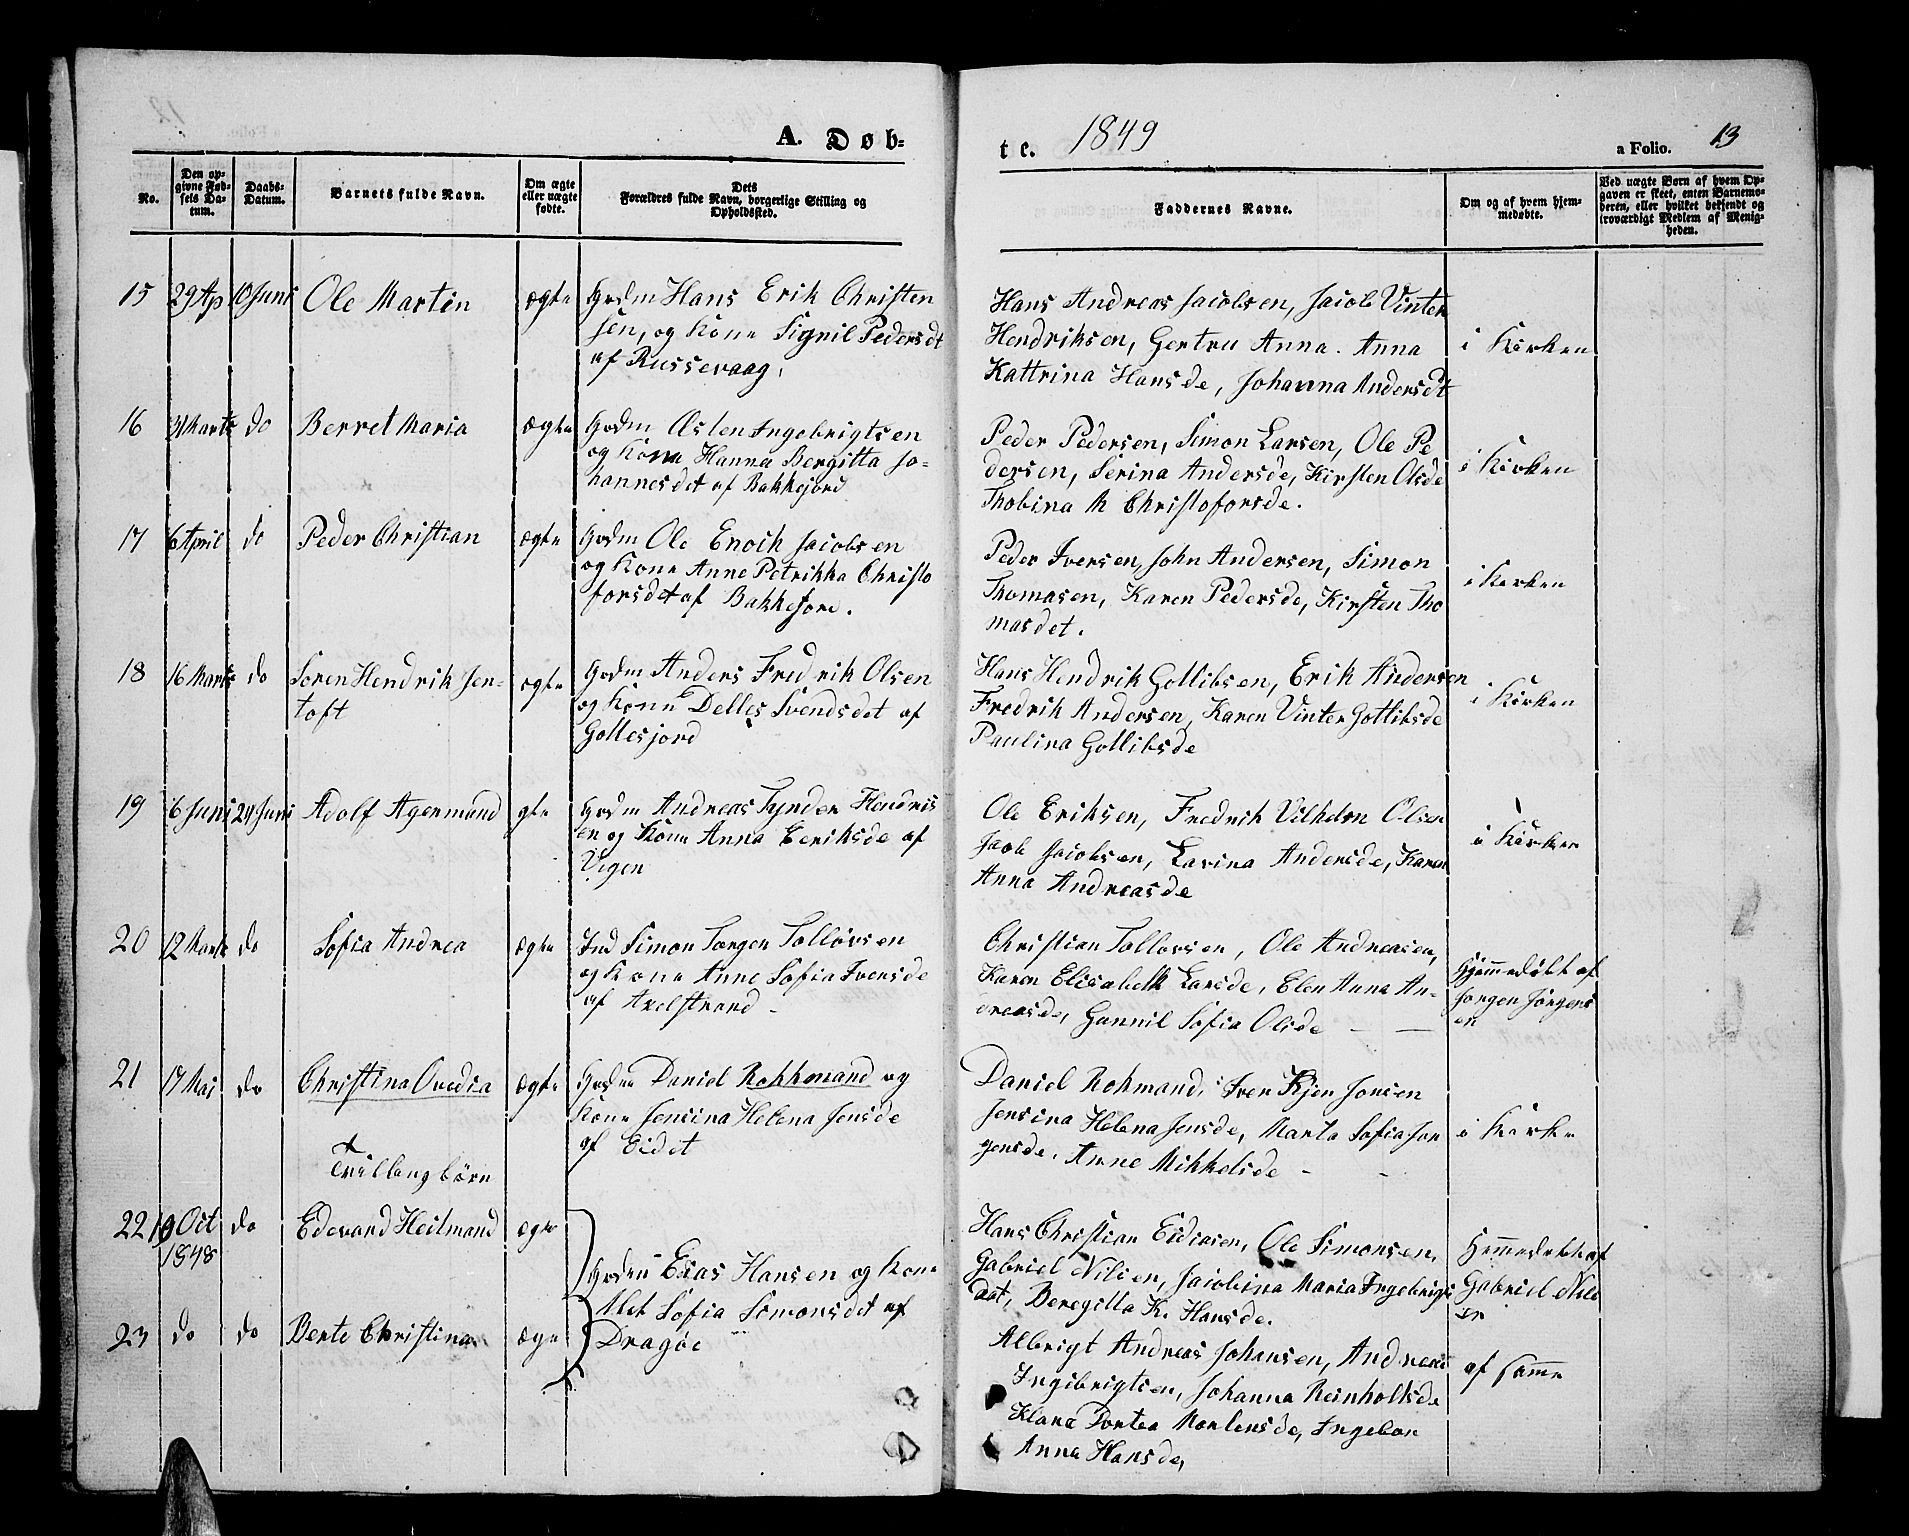 A. Døb-
te. 1849
a Folio. 13
No.
Den op-
givne Fød-
sels Da-
tum.
Daabs-
Datum.
Barnets fulde Navn.
Om ægte
eller uægte
fødte.
Dets
Forældres fulde Navn, borgerlige Stilling og
Opholdssted.
Faddernes Navne.
Om og af hvem hjem-
medøbte.
Ved uægte Børn af hvem Op-
gaven er skeet, enten Barnemo-
deren, eller hvilket bekjendt og
troværdigt Medlem af Menig-
heden.
15 29 Ap 10 Juni Ole Martin ægte Grdm Hans Erik Christen
sen, og Kone Signil Pedersdt
af Russevaag,
Hans Andreas Jacobsen, Jacob Vinter
Hendriksen, Gertru Anna. Anna
Kattrina Hansde, Johanna Andersdt
i Kirken
16 31 Marts do Berret Maria ægte Grdm Østen Ingebrigtsen
og Kone Hanna Bergitta Jo-
hannesdet af Bakkejord
Peder Pedersen, Simon Larsen, Ole Pe
dersen, Serina Andersde, Kirsten Olsde
Thobina M Christoforsde.
i Kirken
17 6 April do Peder Christian ægte Grdm Ole Enoch Jacobsen
og Kone Anne Petrikka Christo
forsdet af Bakkejord.
Peder Iversen, John Andersen, Simon
Thomasen, Karen Pedersde, Kirsten Tho
masdet.
i Kirken
18 16 Marts do Søren Hendrik Jen-
toft
ægte Grdm Anders Fredrik Olsen
og Kone Delles Svendsdet af
Gottesjord
Hans Hendrik Gottlibsen, Erik Andersen
Fredrik Andersen, Karen Vinter Gotlibsde
Paulina Gottlibsde
i Kirken
19 6 Juni 24 Juni Adolf Agermund gte Grdm Andreas Tynder Hendriks
en og Kone Anna Eeriksde af
Vigen
Ole Eriksen, Fredrik Vilhelm Olsen
Jacob Jacobsen, Lavina Andersde, Karen
Anna Andreasde
i Kirken
20 12 Marts do Sofia Andrea ægte Ind Simon Torgen Tollevsen
og Kone Anne Sofia Iversde
af Axelstrand -
Christian Tollevsen, Ole Andreasen,
Karen Elisabeth Larsde, Elen Anna An-
dreasde, Gunnil Sofia Olsde - -
Hjemmedøbt af
Jørgen Jørgens
en
21 17 Mai do Christina Ovedia ægte Grdm Daniel Rokkmand og
Kone Jensina Helena Jensde
af Eidet
Daniel Rohmand, Iver Kjer Jonsen
Jensina Helena Jensde, Marta Sofia Jør
gensde, Anne Mikkelsde - -
i Kirken
Tvillingbørn
22 19 Oct
1848
do Edevard Heilmand ægte
Grdm Esias Hansen og Kone
Alet Sofia Simonsdet af
Dragøe
Hans Christian Esiasen, Ole Simonsen,
Gabriel Nilsen, Jacobina Maria Ingebrigts
dat, Beregitta K. Hansde.
Hjemmedøbt af
Gabriel Nils
en
23 do do Berte Christina ægte
Albrigt Andreas Johansen, Andreas
Ingebrigtsen, Johanna Reinholtsde
Klara Martensde, Ingebor
Anna Hansde,
af samme